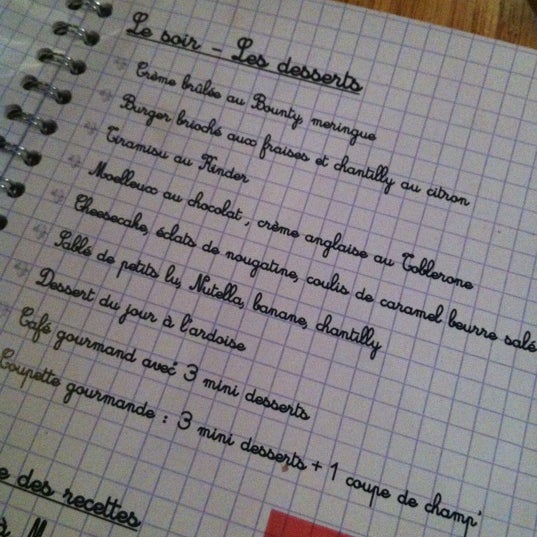 Le soir - Les desserts
Crème brûlée au Bounty, meringue
Burger brioché aux fraises et chantilly au citron
Tiramisu au Kinder
Moelleux au chocolat, crème anglaise au Toblerone
Cheesecake, éclats de nougatine, coulis de caramel beurre salé
Sablé de petits lu, Nutella, banane, chantilly
Dessert du jour à l'ardoise
Café gourmand avec 3 mini desserts
Coupette gourmande : 3 mini desserts + 1 coupe de champ'
des recettes